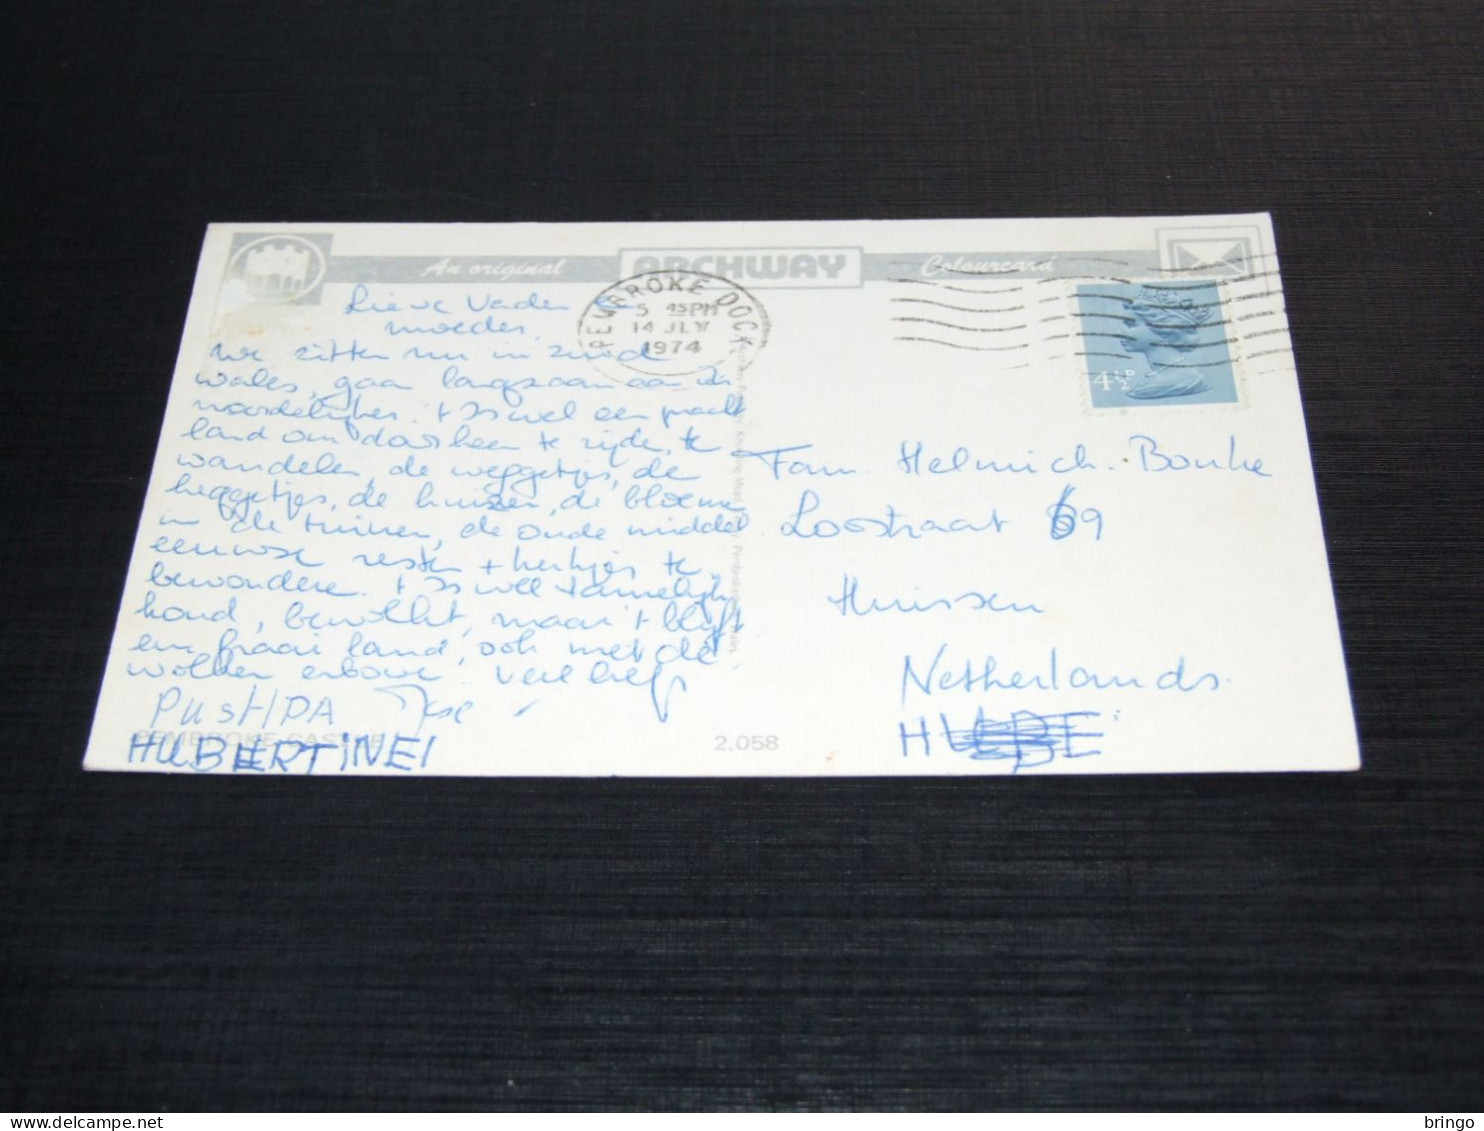 An original ARCHWAY Colourcard
PEMBROKE DOCK
5 45PM
14 JLY
1974
4½P
Lieve Vader &
moeder
we zitten nu in zuid
wales, gaan langzaam aan
noordelijker. t Is wel een pracht
land om door heen te rijde, te
wandelen, de weggetjes, de
heggetjes, de huizen, de bloemen
in de tuinen, de oude middel
eeuwse resten + kerkjes te
bewondere. t Is wel tamelijk
koud, bewolkt, maar t blijft
een fraai land, ook met de
wolken erboven veel liefs
PUSHPA
HUBERTINE!
PEMBROKE CASTLE
2.058
Fam Helmich-Bonke
Loostraat 69
Huissen
Netherlands